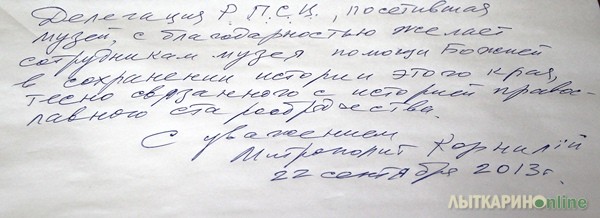 Делегация Р.П.С.Ц., посетившая
музей, с благодарностью желает
сотрудникам музея помощи Божией
в сохранении истории этого края,
тесно связанного с историей правос-
лавного старообрядчества.
С уважением
Митрополит Корнилий
22 сентября 2013г.
ЛЫТКАРИНОonline